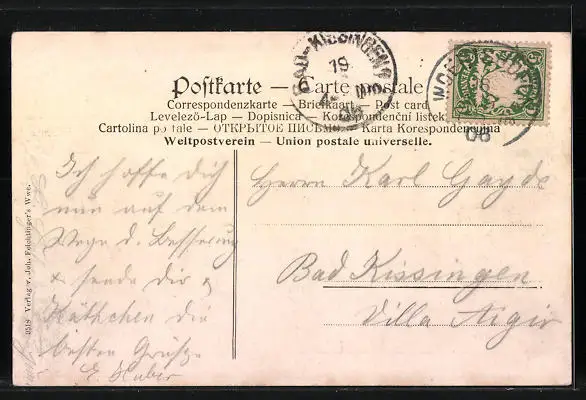 BAD-KISSINGEN
19
06
WOE
06
Postkarte — Carte postale
Correspondenzkarte — Briefkaart — Post card
Levelező-Lap — Dopisnica — Korespondenční listek
Cartolina postale — ОТКРЫТОЕ ПИСЬМО — Karta Korespondencyjna
Weltpostverein — Union postale universelle.
Ich hoffe dich
nun auf dem
Wege d. Besserung
& sende dir &
Käthchen die
besten Grüsze
E. Huber
Herrn Karl Gayde
Bad Kissingen
Villa Aegir
2518 Verlag v. Joh. Felchtinger's Wwe.